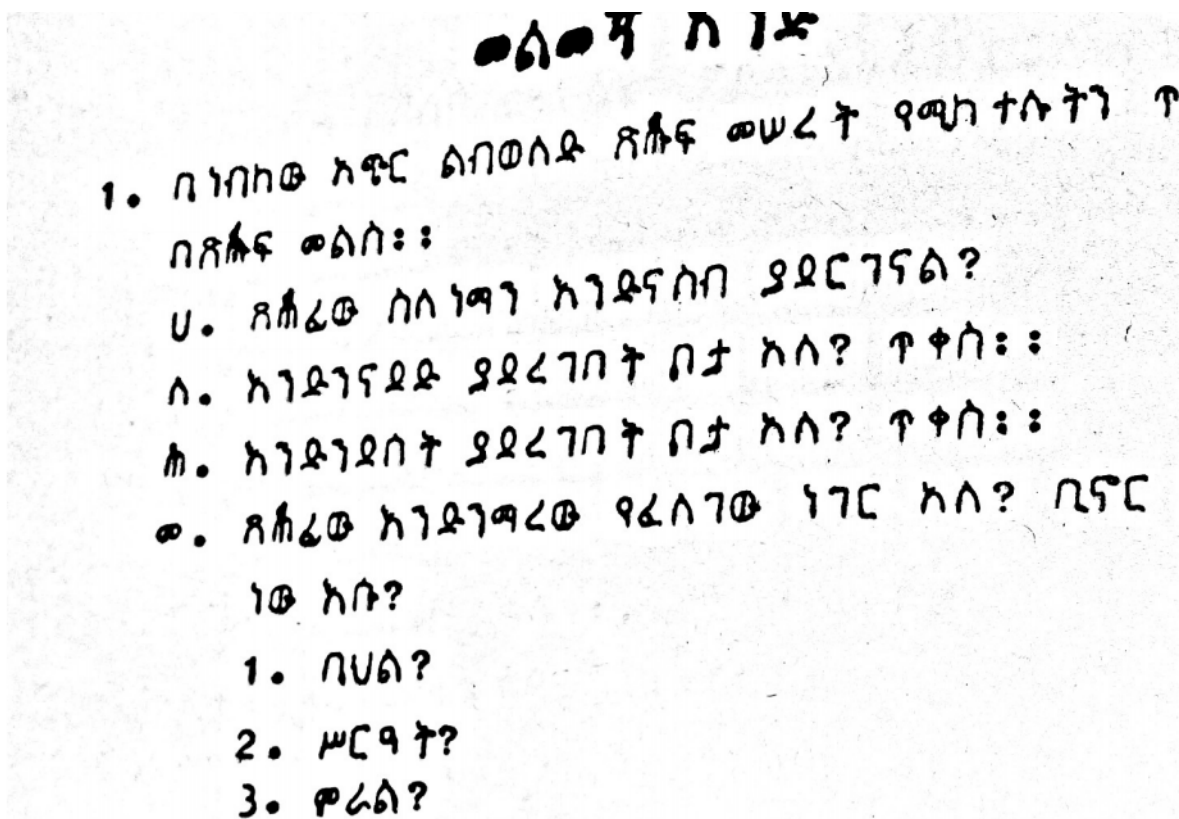 መልመጃ አንድ
1. ባነብከው አጭር ልብወለድ ጽሑፍ መሠረት የሚከተሉትን
በጽሑፍ መልስ።
ሀ. ጸሐፊው ስለነማን እንድናስብ ያደርገናል?
ለ. እንድንናደድ ያደረገበት ቦታ አለ? ጥቀስ።
ሐ. እንድንደሰት ያደረገበት ቦታ አለ? ጥቀስ።
መ. ጸሐፊው እንድንማረው የፈለገው ነገር አለ? ቢኖር
ነው እሱ?
1. ባህል?
2. ሥርዓት?
3. ምራል?